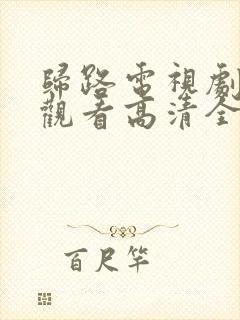 歸路電視劇
觀看高清全
百尺竿